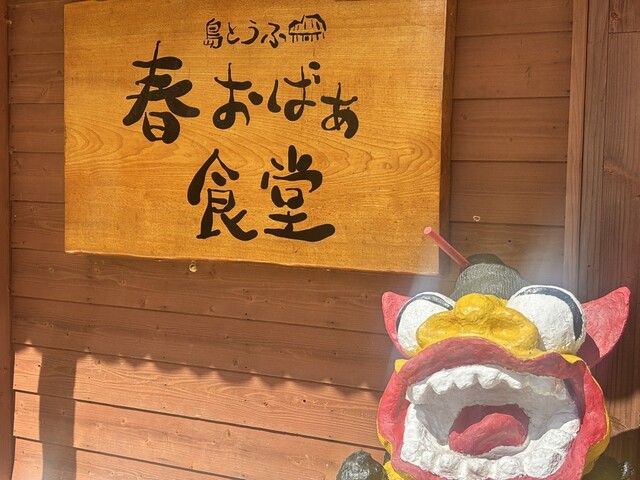 島とうふ
春おばぁ
食堂